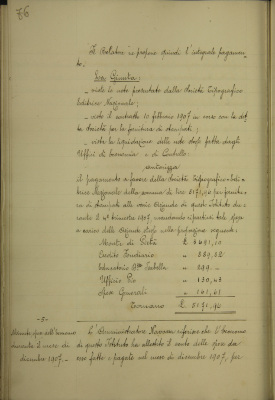 76
Il Relatore in propone quindi l'integrale pagamen-
to;
La Giunta:
- viste le note presentate dalla Società Tipografico
Editrice Nazionale;
- visto il contratto 10 febbraio 1907 in corso con la det-
ta Società per la fornitura di stampati;
- vista la liquidazione delle note stesse fatta dagli
Uffici di Economia e di Controllo;
autorizza
il pagamento a favore della Società Tipografico-Edi-
trice Nazionale della somma di lire 5171,92 per fornitu-
ra di stampati alle varie Aziende di questo Istituto du-
rante il 4° trimestre 1907, mandando ripartirsi tale spesa
a carico delle Aziende stesse nelle proporzioni seguenti:
Monte di Pietà £
Credito Fondiario "
Esattoria "
Ufficio Pio "
Spese Generali "
Sommano £ 5171,92
- 5 -
Rimborso spese dell'economo
durante il mese di
dicembre 1907. -
L'Amministratore riferisce che l'Economo
di questo Istituto ha allestito il conto delle spese da
esso fatte e pagate nel mese di dicembre 1907, per